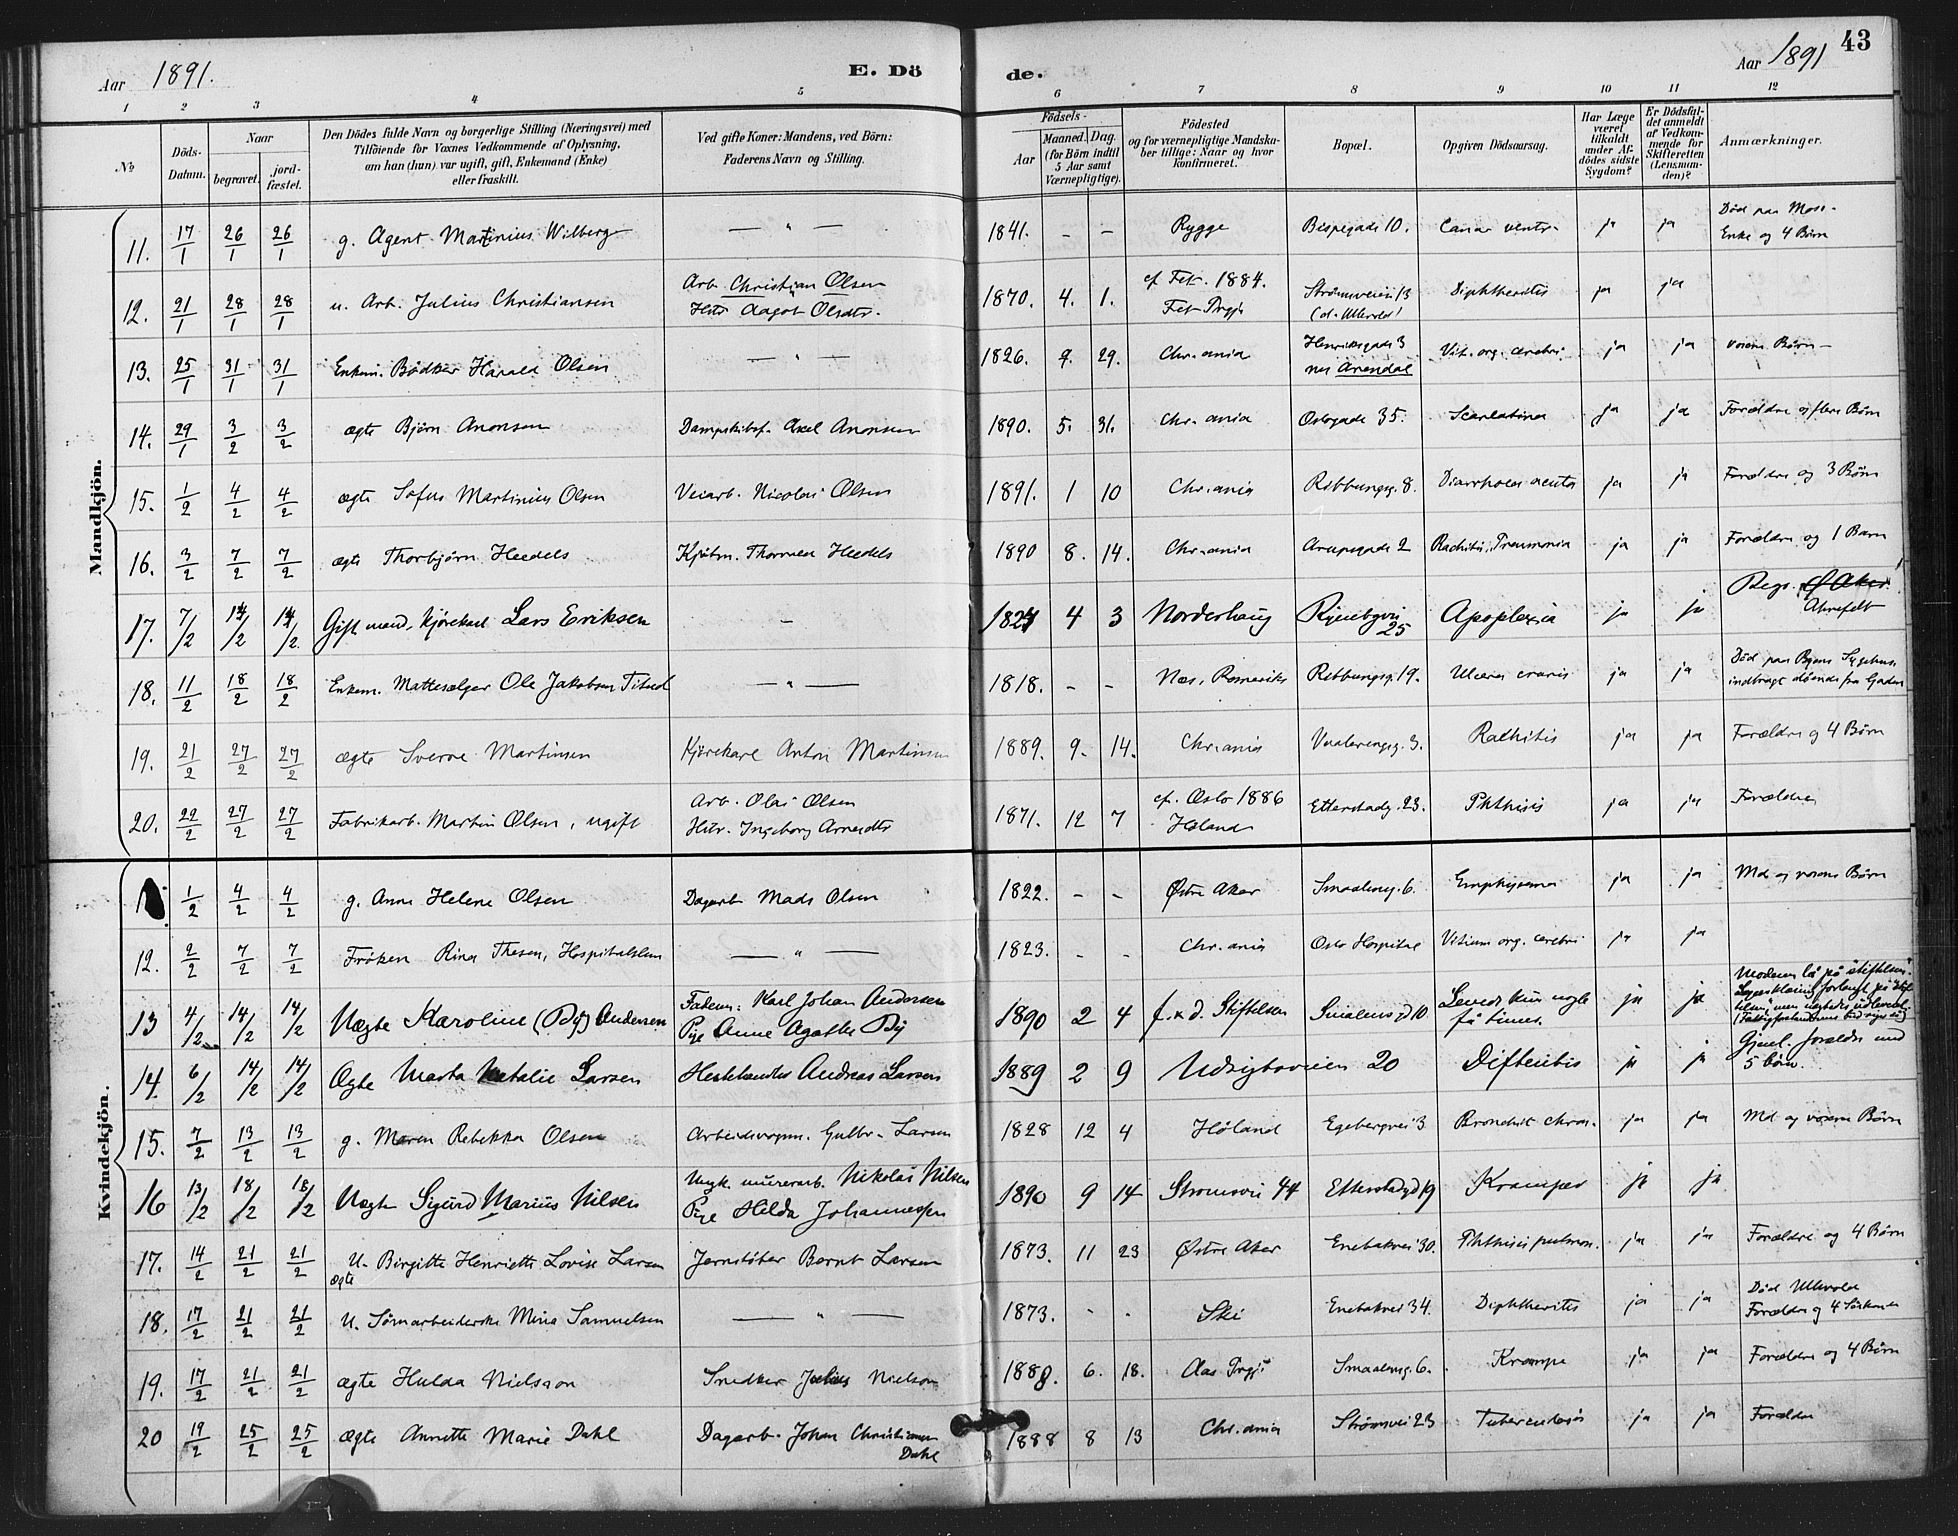 Aar 1891. E. Dö de. Aar 1891 43
1 2 3 4 5 6 7 8 9 10 11 12
№ Döds-Datum. Naar begravet. jordfæstet. Den Dödes fulde Navn og borgerlige Stilling (Næringsvei) med Tilföiende for Voxnes Vedkommende af Oplysning, om han (hun) var ugift, gift, Enkemand (Enke) eller fraskilt. Ved gifte Koner: Mandens, ved Börn: Faderens Navn og Stilling. Födsels- Aar Maaned. Dag. (for Börn indtil 5 Aar samt Værnepligtige). Födested og for værnepligtige Mandskaber tillige: Naar og hvor konfirmeret. Bopæl. Opgiven Dödsaarsag. Har Læge været tilkaldt under Afdödes sidste Sygdom? Er Dödsfaldet anmeldt af Vedkommende for Skifteretten (Lensmanden)? Anmærkninger.
Mandkjön.
11. 17/1 26/1 26/1 g. Agent Martinius Wilberg — " — 1841. – – Rygge Bispegade 10. Cancer ventr. ja ja Död paa Moss-
Enke og 4 Börn
12. 21/1 28/1 28/1 u. Arb. Julius Christiansen Arb. Christian Olsen
Hstr Aagot Olsdtr. 1870. 4. 1. cf. Fet. 1884.
Fet Prgj. Strömsveien 13
(d. Ullevold) Diphtheritis ja ja
13. 25/1 31/1 31/1 Enkem. Bödker Harald Olsen — " — 1826. 9. 29. Chr.ania Henriksgade 3
nu Arendal Vit. org. cerebri ja ja voxne Börn –
14. 29/1 3/2 3/2 ægte Björn Anonsen Dampskibsf. Axel Anonsen 1890. 5. 31. Chr.ania Oslogade 35. Scarlatina ja ja Forældre og flere Börn
15. 1/2 4/2 4/2 ægte Sofus Martinius Olsen Veiarb. Nicolai Olsen 1891. 1 10 Chr.ania Ribbungsg. 8. Diarrhoea acuta ja ja Forældre og 3 Börn
16. 3/2 7/2 7/2 ægte Thorbjörn Heedels Kjöbm. Thorvald Heedels 1890 8. 14. Chr.ania Arupsgade 2 Rachitis, Pneumonia ja ja Forældre og 1 Barn
17. 7/2 14/2 14/2. Gift mand, Kjörekarl Lars Eriksen – 1824 4 3 Norderhaug Ryenbgvei
25 Apoplexia ja ja Begr. Ø Aker
18. 11/2 18/2 18/2 Enkem. Mattesælger Ole Jakobsen — " — 1818. – – Næs, Romerike Ribbungsg. 19. Ulcera cruris ja ja Död paa Byens Sygehus.
indbragt döende fra Gaden
19. 21/2 27/2 27/2 ægte Sverre Martinsen Kjörekarl Anton Martinsen 1889. 9. 14. Chr.ania Vaalerengsg. 3. Rachitis ja ja Forældre og 4 Börn
20. 22/2 27/2 27/2 Fabrikarb. Martin Olsen, ugift Arb. Olai Olsen
Hstr. Ingeborg Arnesdtr 1871. 12 7 cf. Oslo 1886
Höland Etterstadg. 23. Phthisis ja ja Forældre
Kvindekjön.
1/2 4/2 4/2 g. Anne Helene Olsen Dagarb Mads Olsen 1822. – – Østre Aker Smaaleng. 6. Emphysema ja ja Md og voxne Börn
12. 2/2 7/2 7/2 Fröken Rina Thesen, Hospitalslem — " — 1823. – – Chr.ania Oslo Hospital Vitium org. cerebri ja ja
13 4/2 14/2 14/2 Uægte Karoline (By) Andersen Faderen: Karl Johan Andersen
Pige Anne Agathe By 1890 2 4 f. & d. Stiftelsen Smalensgd 10 Leved kun nogle
få timer. ja ja Moderen lå på "stiftelsen".
14. 6/2 14/2 14/2 Ægte Marta Natalie Larsen Hestehandler Andreas Larsen 1889 2 9 Udsigtsveien 20 Difteritis ja ja Gjenl. forældre med
5 börn.
15. 7/2 13/2 13/2 g. Maren Rebekka Olsen Arbeidsvogm. Gulbr. Larsen 1828 12 4 Höland Egebergvei 3 Bronchit chron. ja ja Md og voxne Börn
16 13/2 18/2 18/2 Uægte Sigurd Marius Nilsen Ungk. murerarb. Nikolai Nilsen
Pige Hilda Johannessen 1890 9 14 Strömsvei 44 Etterstadgd 19 Kramper ja ja
17. 14/2 21/2 21/2 U. Birgitte Henriette Lovise Larsen
ægte Jernstöber Bernt Larsen 1873. 11 23 Østre Aker Enebakvei 30. Phthisis pulmon. ja ja Forældre og 4 Börn
18. 17/2 21/2 21/2 U. Sömarbeiderske Mina Samuelsen — " — 1873. - - Ski Enebakvei 34. Diphtheritis ja ja Död Ullevold
Forældre og 4 Söskende
19. 17/2 21/2 21/2 ægte Hulda Nielsson Snedker Julius Nielson 1888. 6. 18. Aas Prgj. Smaaleng. 6. Krampe ja ja Forældre og 4 Börn
20 19/2 25/2 25/2 ægte Annette Marie Dahl Dagarb. Johan Christiansen
Dahl 1888 8 13 Chr.ania Strömsvei 23 Tuberculosis ja ja Forældre